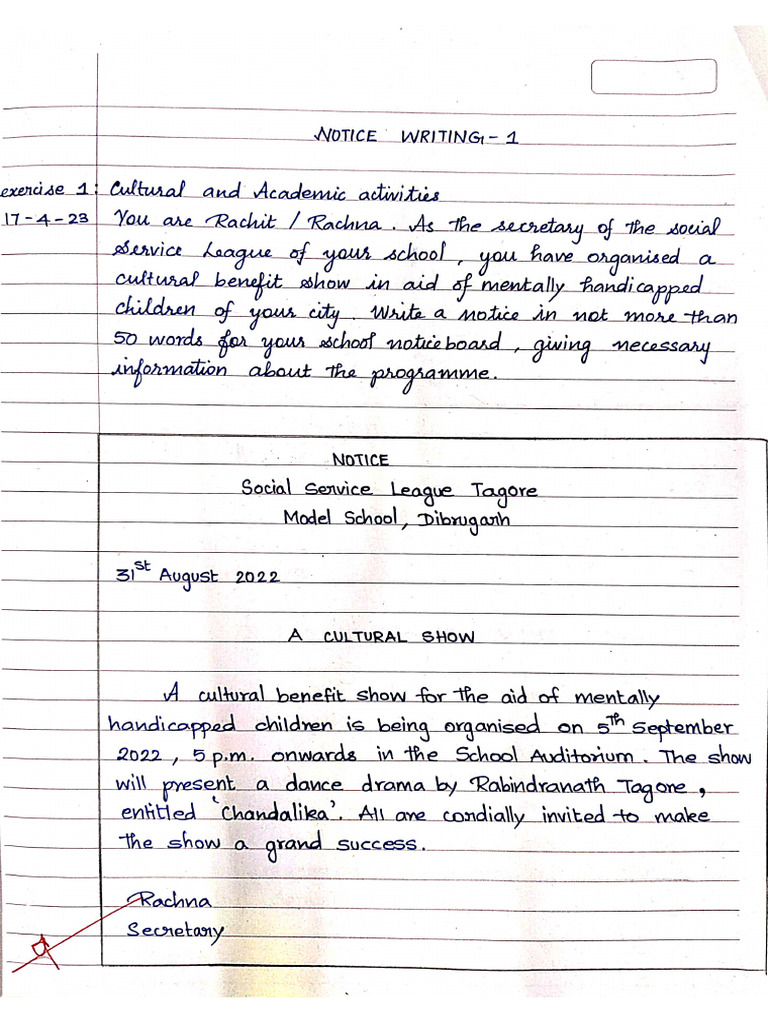 NOTICE WRITING - 1
exercise 1: Cultural and Academic activities
17-4-23 You are Rachit / Rachna. As the secretary of the social
Service League of your school, you have organised a
cultural benefit show in aid of mentally handicapped
children of your city. Write a notice in not more than
50 words for your school noticeboard, giving necessary
information about the programme.
NOTICE
Social Service League Tagore
Model School, Dibrugarh
31st August 2022
A CULTURAL SHOW
A cultural benefit show for the aid of mentally
handicapped children is being organised on 5th September
2022, 5 p.m. onwards in the School Auditorium. The show
will present a dance drama by Rabindranath Tagore,
entitled 'Chandalika'. All are cordially invited to make
the show a grand success.
Rachna
Secretary